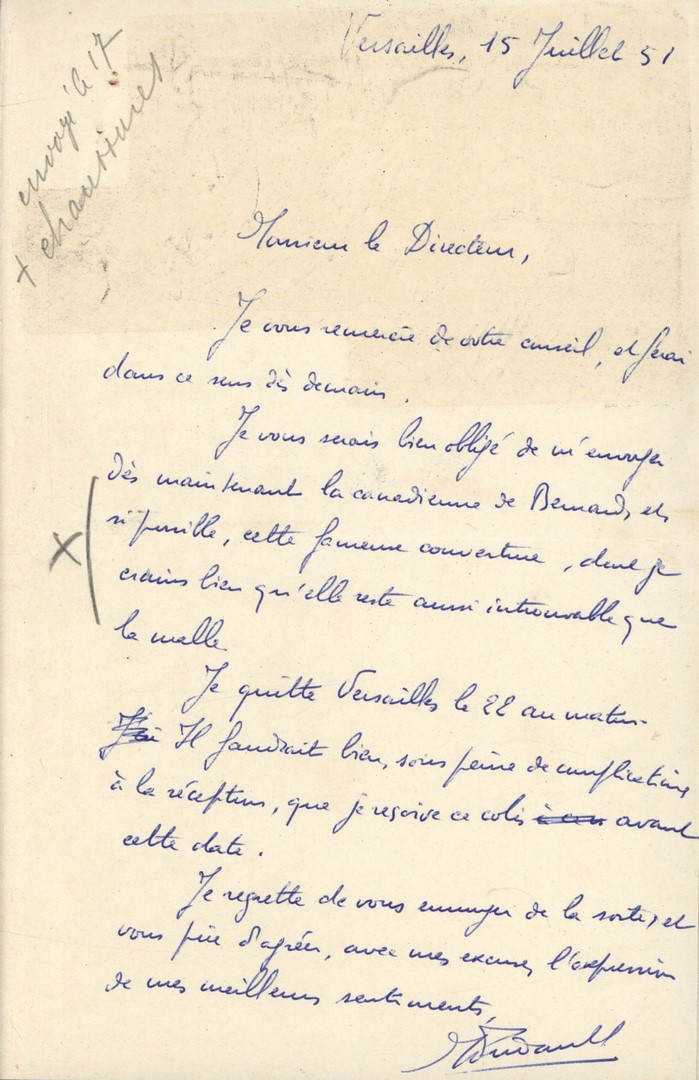 Versailles, 15 Juillet 51
envoyé le 17
+ chaussures
Monsieur le Directeur,
Je vous remercie de votre conseil, et ferai
dans ce sens dès demain.
Je vous serais bien obligé de m'envoyer
dès maintenant la canadienne de Bernard, et
si possible, cette fameuse couverture, dont je
crains bien qu'elle reste aussi introuvable que
la malle
Je quitte Versailles le 22 au matin.
Il faudrait bien, sous peine de complications
à la réception, que je reçoive ce colis avant
cette date.
Je regrette de vous ennuyer de la sorte, et
vous prie d'agréer, avec mes excuses, l'expression
de mes meilleurs sentiments,